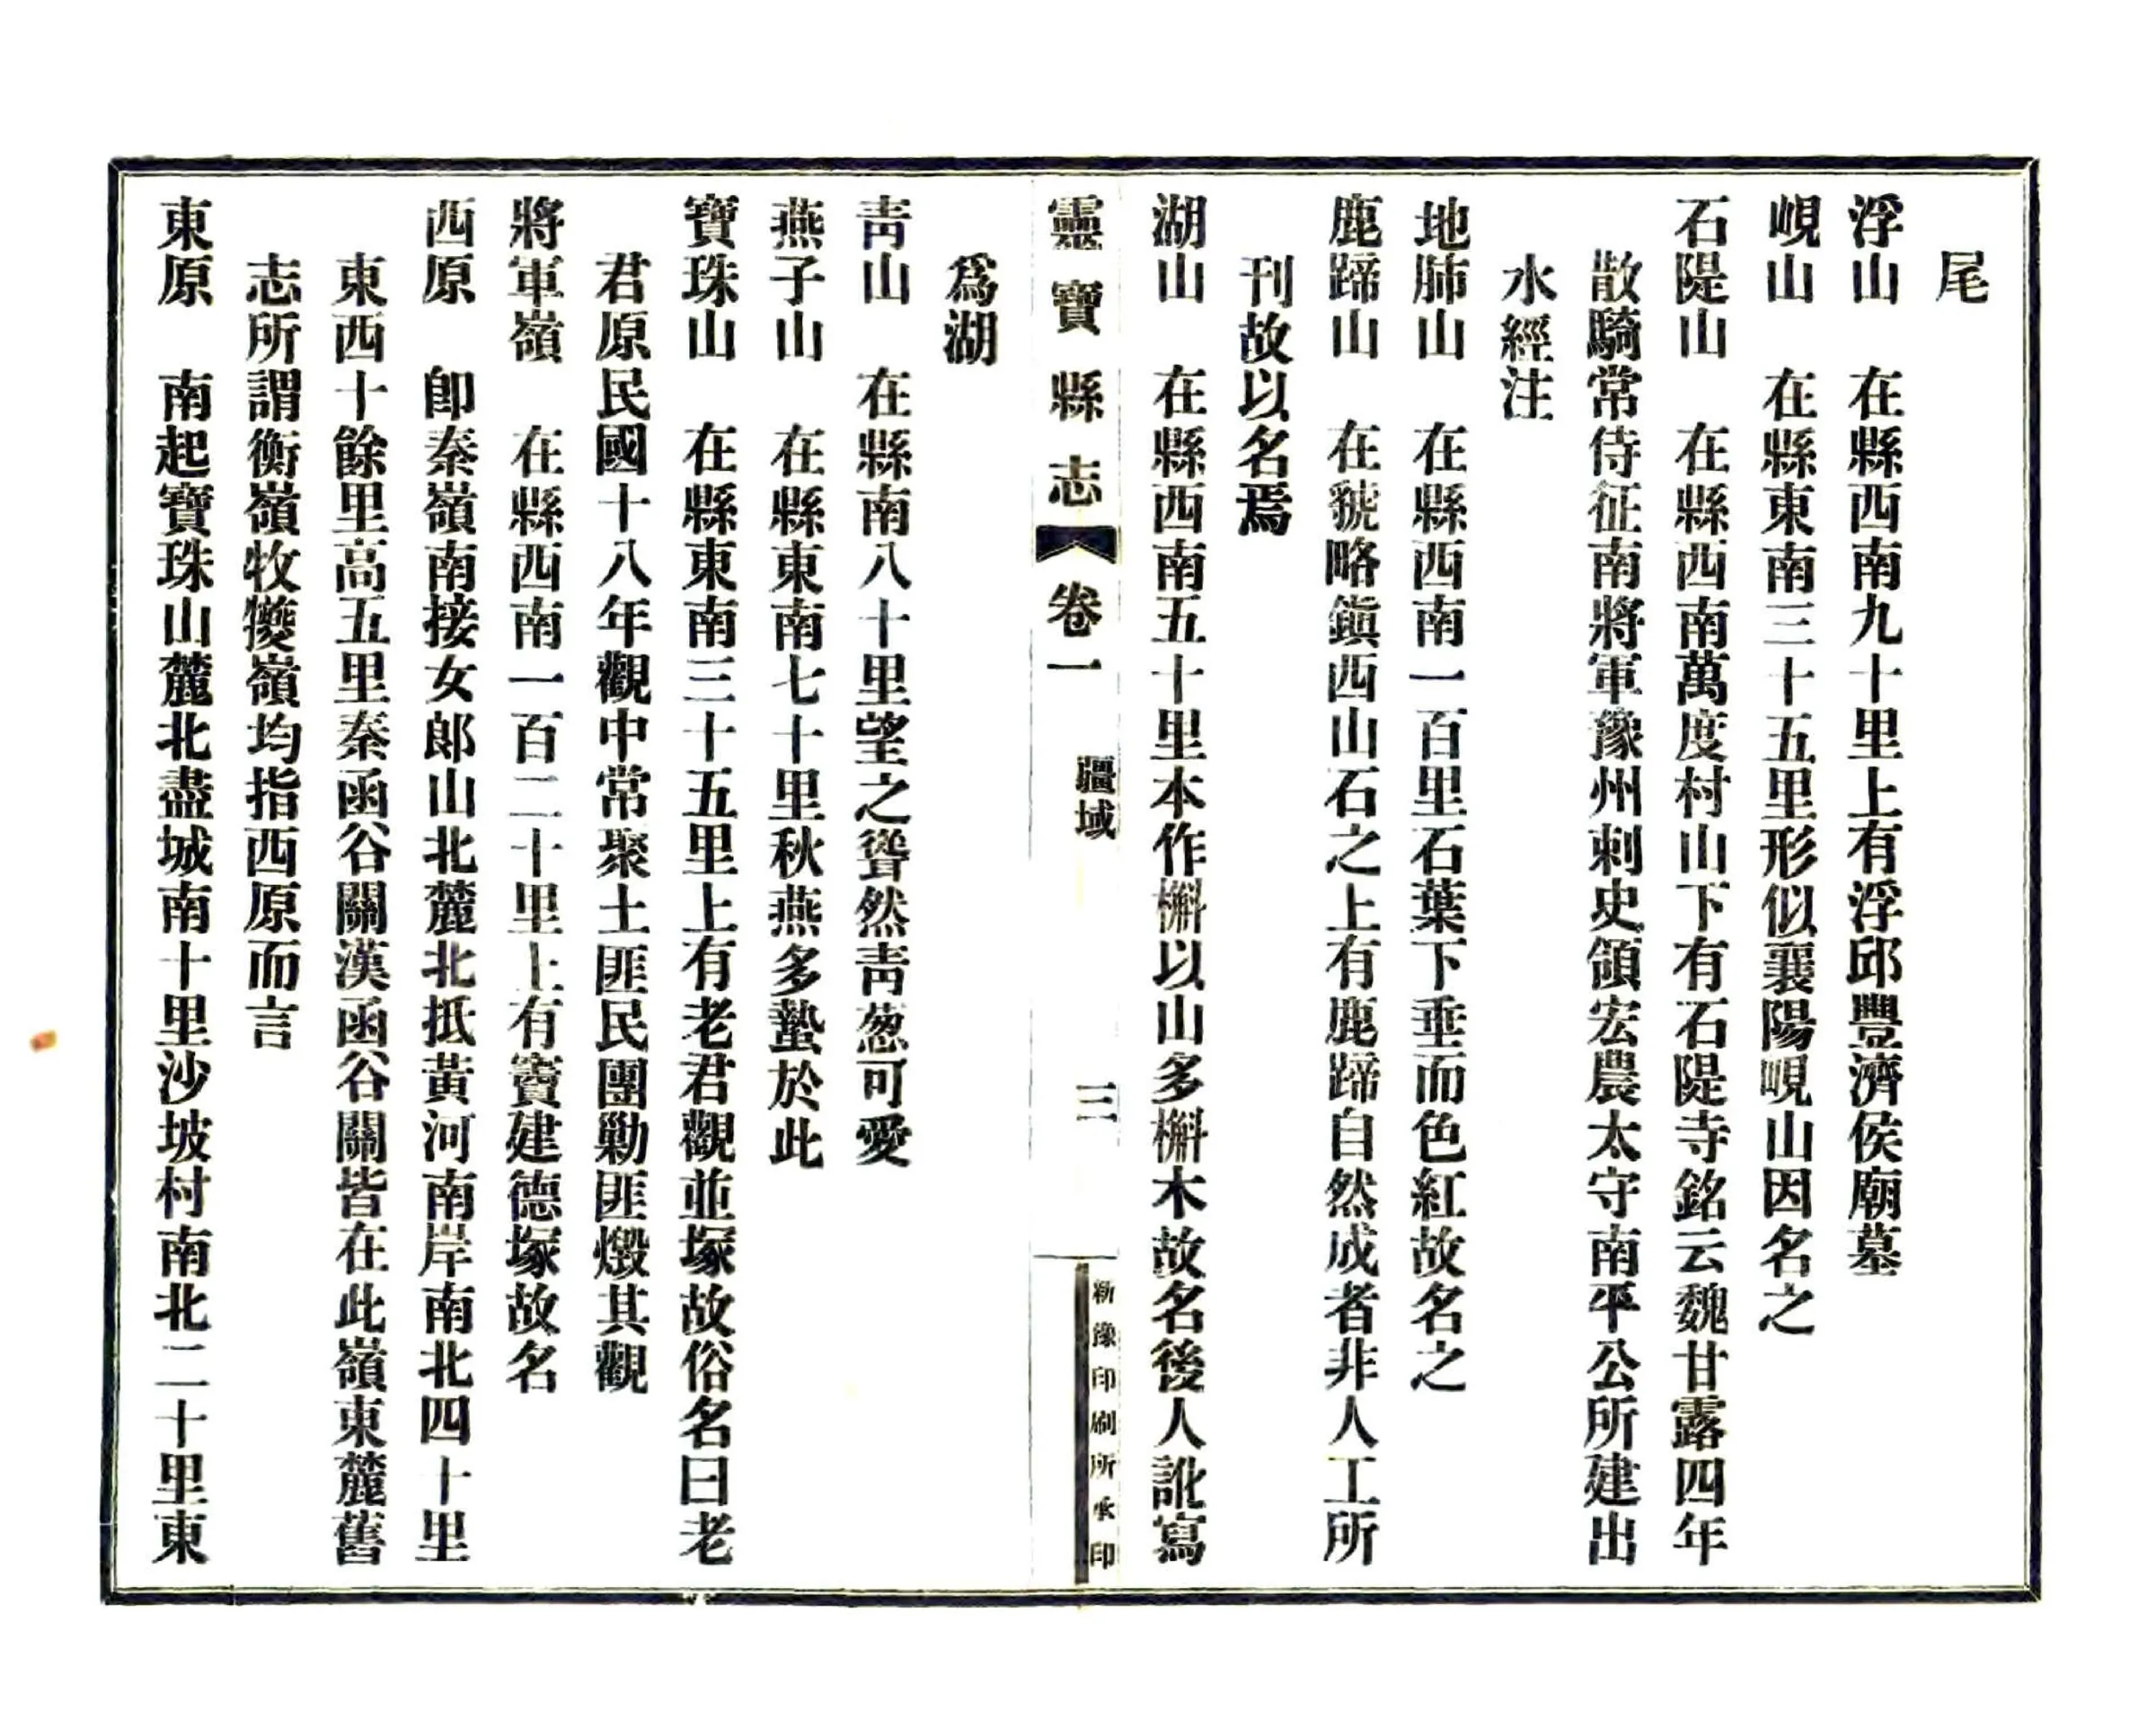 尾
浮山　在縣西南九十里上有浮邱豐濟侯廟墓
峴山　在縣東南三十五里形似襄陽峴山因名之
石隄山　在縣西南萬度村山下有石隄寺銘云魏甘露四年
散騎常侍征南將軍豫州刺史領宏農太守南平公所建出
水經注
地肺山　在縣西南一百里石葉下垂而色紅故名之
鹿蹄山　在虢略鎮西山石之上有鹿蹄自然成者非人工所
刊故以名焉
湖山　在縣西南五十里本作槲以山多槲木故名後人訛寫
靈寶縣志　卷一　疆域　三　新豫印刷所承印
爲湖
靑山　在縣南八十里望之聳然靑葱可愛
燕子山　在縣東南七十里秋燕多蟄於此
寶珠山　在縣東南三十五里上有老君觀並塚故俗名曰老
君原民國十八年觀中常聚土匪民團勦匪燬其觀
將軍嶺　在縣西南一百二十里上有竇建德塚故名
西原　卽秦嶺南接女郎山北麓北抵黃河南岸南北四十里
東西十餘里高五里秦函谷關漢函谷關皆在此嶺東麓舊
志所謂衡嶺牧㹛嶺均指西原而言
東原　南起寶珠山麓北盡城南十里沙坡村南北二十里東